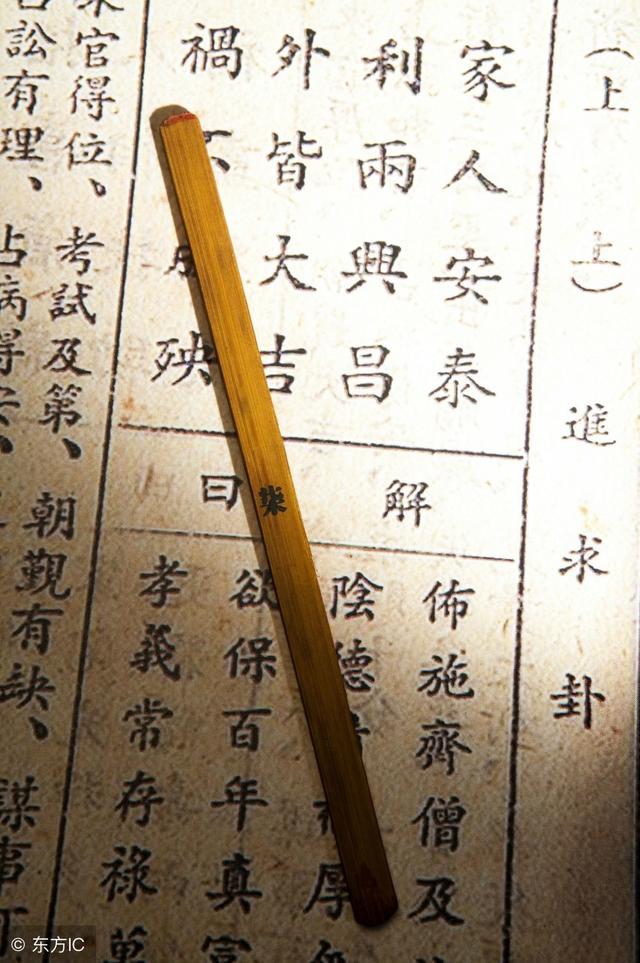 （上上）進求卦
家人安泰
利兩興昌
外皆大吉
禍殃
解曰
佈施齊僧及
陰德厚
欲保百年真富
孝義常存祿萬
官得位、考試及第、朝觀有缺、謀事
訟有理、占病得安、
柒
© 东方IC